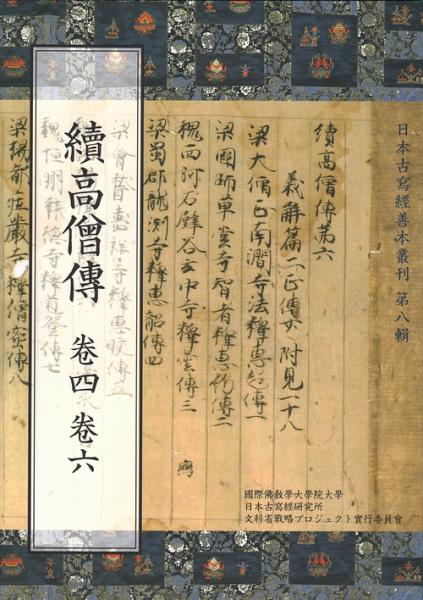 日本古寫經善本叢刊 第八輯
續高僧傳 卷四 卷六
續高僧傳卷第六
義解篇二 正傳六 附見一十八
梁大僧正南澗寺法釋惠超傳一
梁國師草堂寺智者釋惠約傳二
魏西河石壁谷玄中寺釋鸞傳三
鸞
梁蜀郡龍淵寺釋惠韶傳四
梁會稽嘉祥寺釋惠皎傳五
魏恒州報德寺釋道登傳七
梁楊都莊嚴寺釋僧密傳八
國際佛敎學大學院大學
日本古寫經硏究所
文科省戰略プロジェクト實行委員會